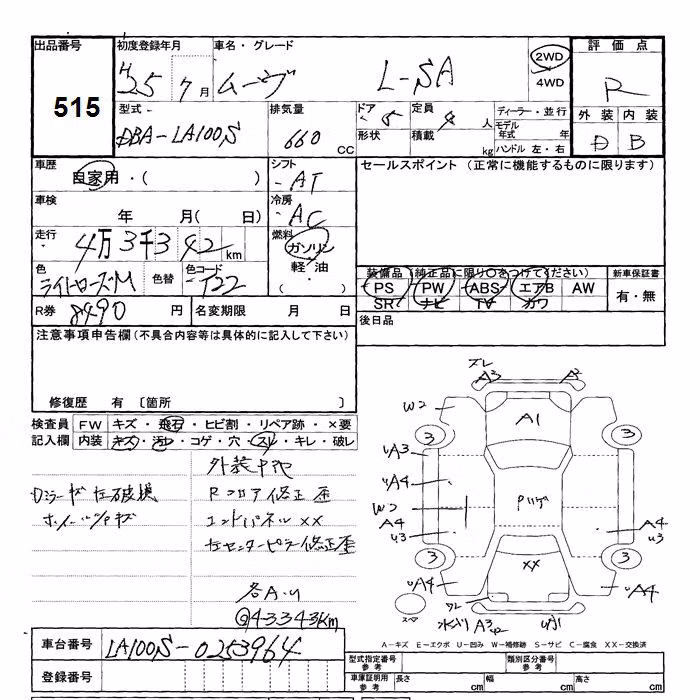 出品番号
515
初度登録年月
H25 7月
車名・グレード
ムーヴ L-SA
2WD
4WD
評価点
R
外装 内装
D B
型式
DBA-LA100S
排気量
660 CC
ドア 5
形状
定員 4 人
積載 kg
ディーラー・並行
モデル年式 年
ハンドル 左・右
車歴
自家用・( )
シフト
AT
セールスポイント (正常に機能するものに限ります)
車検
年 月( 日)
冷房
AC
走行
4万3千342 km
燃料
ガソリン
軽油
( )
色
ライトローズ・M
色替
色コード
T22
装備品 (純正品に限り○をつけてください)
PS PW ABS エアB AW
SR ナビ TV カワ
新車保証書
有・無
R券 8490 円
名変期限 月 日
後日品
注意事項申告欄 (不具合内容等は具体的に記入して下さい)
修復歴 有 〔箇所 〕
検査員記入欄
FW キズ・飛石・ヒビ割・リペア跡・×要
内装 キズ・汚レ・コゲ・穴・スレ・キレ・破レ
Dミラーキズ 左破損
ホイールキズ
Rフロア修正歪
エンドパネルXX
左センターピラー修正歪
各A.U
@43343km
ズレ
A3
A1
W2
3
3
UA3
UA4
W2
A4
U3
A4
U3
3
3
UA4
UA4
XX
A3
A-キズ E-エクボ U-凹み W-補修跡 S-サビ C-腐食 XX-交換済
車台番号 LA100S-0253964
登録番号
型式指定番号 参考
類別区分番号 参考
車庫証明用 参考
長さ cm
幅 cm
高さ cm